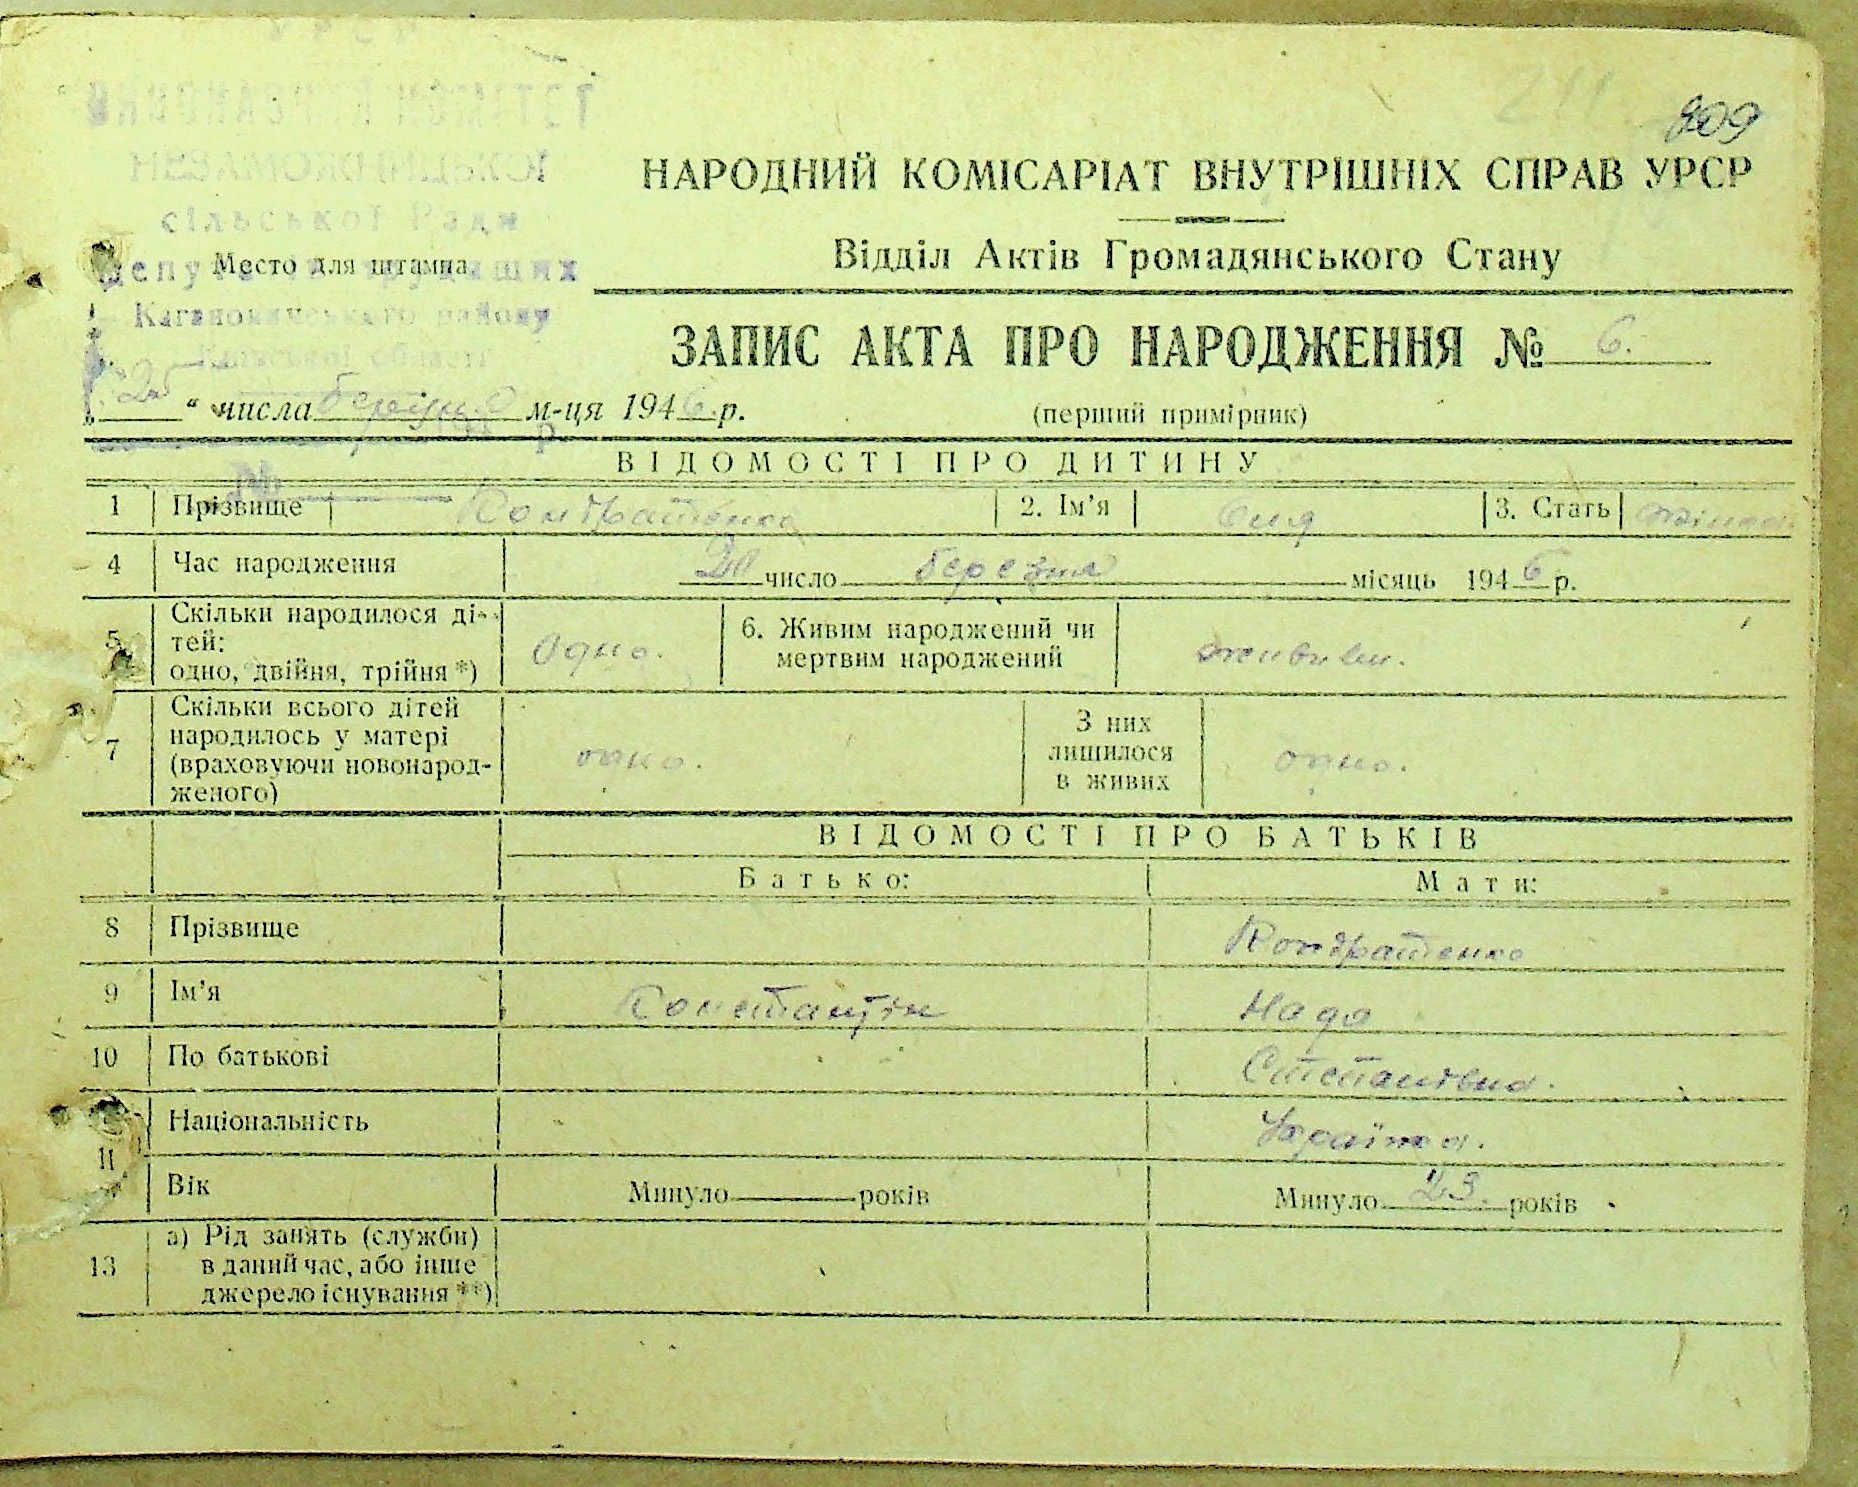 209
НАРОДНИЙ КОМІСАРІАТ ВНУТРІШНІХ СПРАВ УРСР
Відділ Актів Громадянського Стану
сільської Ради
депутатів трудящих
Место для штампа
Кагановичського району
Київської області
ЗАПИС АКТА ПРО НАРОДЖЕННЯ № 6.
"25" числа березня м-ця 1946 р.
(перший примірник)
№
ВІДОМОСТІ ПРО ДИТИНУ
1 Прізвище Кондратенко 2. Ім'я 3. Стать
4 Час народження число березня місяць 1946 р.
5 Скільки народилося ді-
тей:
одно, двійня, трійня *) Одно. 6. Живим народжений чи
мертвим народжений живим.
7 Скільки всього дітей
народилось у матері
(враховуючи новонарод-
женого) одно. З них
лишилося
в живих одно.
ВІДОМОСТІ ПРО БАТЬКІВ
Батько: Мати:
8 Прізвище Кондратенко
9 Ім'я Константін Надя
10 По батькові Степановна.
11 Національність Українка.
Вік Минуло років Минуло 23. років
13 а) Рід занять (служби)
в даний час, або інше
джерело існування **)